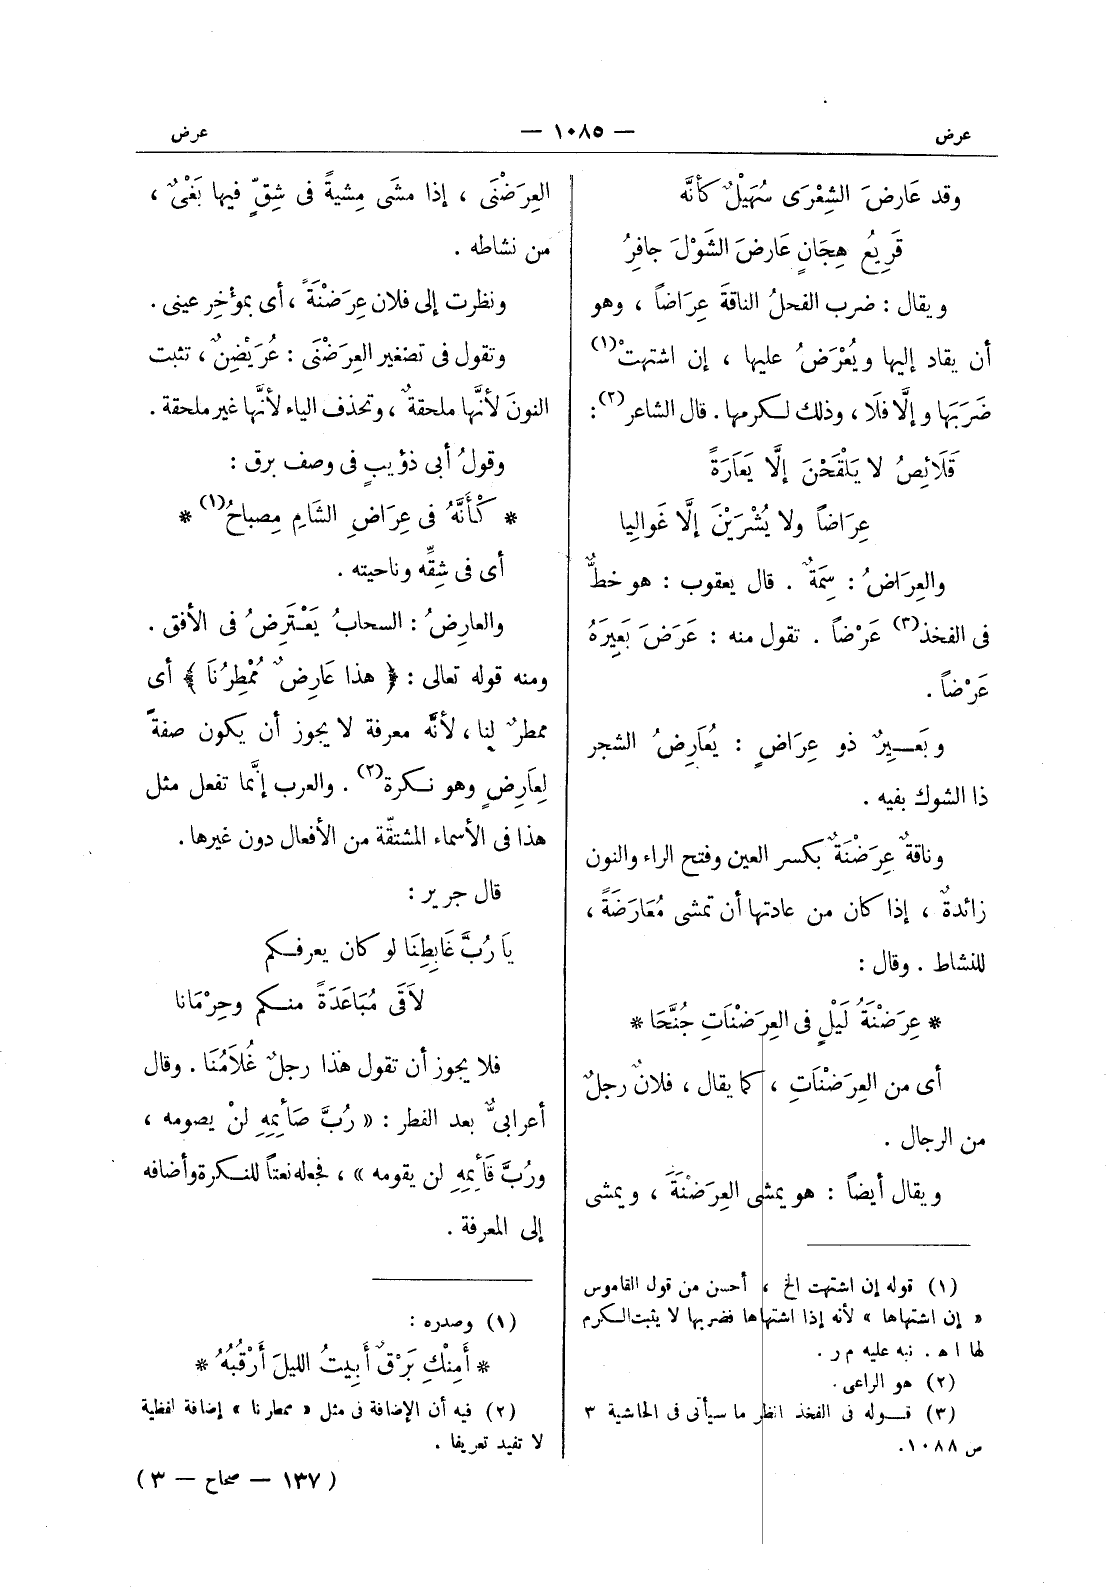 عرض
— ١٠٨٥ —
عرض
وقد عَارضَ الشِعْرَى سُهَيْلٌ كأنَّه
قَرِيعُ هِجَانٍ عَارضَ الشَوْلَ جافِرُ
ويقال : ضرب الفحلُ الناقةَ عِرَاضاً ، وهو
أن يقاد إليها ويُعْرَضُ عليها ، إن اشتهتْ(١)
ضَرَبَها وإلَّا فلَا ، وذلك لكرمها . قال الشاعر(٢):
قَلَائِصُ لا يَلْقَحْنَ إلَّا يَعَارَةً
عِرَاضاً ولا يُشْرَيْنَ إلَّا غَوالِيا
والعِرَاضُ : سِمَةٌ . قال يعقوب : هو خطٌّ
فى الفخذ(٣) عَرْضاً . تقول منه : عَرَضَ بَعِيرَهُ
عَرْضاً .
وبَعِيرٌ ذو عِرَاضٍ : يُعَارِضُ الشجر
ذا الشوك بفيه .
وناقةٌ عِرَضْنَةٌ بكسر العين وفتح الراء والنون
زائدةٌ ، إذا كان من عادتها أن تمشى مُعَارَضَةً ،
للنشاط . وقال :
* عِرَضْنَةُ لَيْلٍ فى العِرَضْنَاتِ جُنَّحَا *
أى من العِرَضْنَاتِ ، كما يقال ، فلانٌ رجلٌ
من الرجال .
ويقال أيضاً : هو يمشى العِرَضْنَةَ ، ويمشى
(١) قوله إن اشتهت الخ ، أحسن من قول القاموس
« إن اشتهاها » لأنه إذا اشتهاها فضربها لا يثبت الكرم
لها اه . نبه عليه م ر .
(٢) هو الراعى .
(٣) قوله فى الفخذ انظر ما سيأتى فى الحاشية ٣
ص ١٠٨٨ .
العِرَضْنَى ، إذا مشَى مِشيةً فى شِقٍّ فيها بَغْىٌ ،
من نشاطه .
ونظرت إلى فلان عِرَضْنَةً ، أى بمؤخِر عينى .
وتقول فى تصغير العِرَضْنَى : عُرَيْضِنٌ ، تثبت
النونَ لأنَّها ملحقةٌ ، وتحذف الياء لأنَّها غير ملحقة .
وقولُ أبى ذؤيبٍ فى وصف برق :
* كَأَنَّهُ فى عِرَاضِ الشَامِ مِصباحُ(١) *
أى فى شِقِّه وناحيته .
والعارِضُ : السحابُ يَعْتَرِضُ فى الأفق .
ومنه قوله تعالى : ﴿ هذا عَارِضٌ مُمْطِرُنَا ﴾ أى
ممطرٌ لنا ، لأنَّه معرفة لا يجوز أن يكون صفةً
لِعَارِضٍ وهو نكرة(٢) . والعرب إنَّما تفعل مثل
هذا فى الأسماء المشتقّة من الأفعال دون غيرها .
قال جرير :
يَا رُبَّ غَابِطِنَا لو كان يعرفكم
لَاقَى مُبَاعَدَةً منكم وحِرْمَانا
فلا يجوز أن تقول هذا رجلٌ غُلَامُنَا . وقال
أعرابىٌّ بعد الفطر : « رُبَّ صَائِمِهِ لنْ يصومه ،
ورُبَّ قَائِمِهِ لن يقومه » ، فجعله نعتاً للنكرة وأضافه
إلى المعرفة .
(١) وصدره :
* أَمِنْكِ بَرْقٌ أَبِيتُ الليلَ أَرْقُبُهُ *
(٢) فيه أن الإضافة فى مثل « ممطرنا » إضافة لفظية
لا تفيد تعريفا .
( ١٣٧ — صحاح — ٣ )